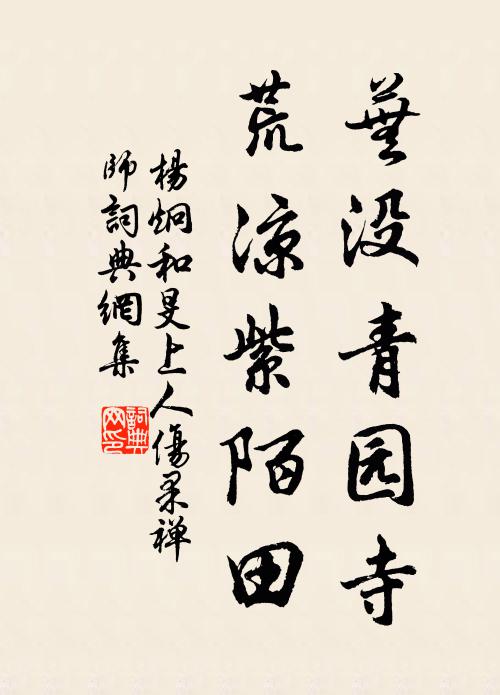 蕪没青园寺
荒凉紫陌田
楊炯和旻上人傷果禅
師詞典網集
詞典网印